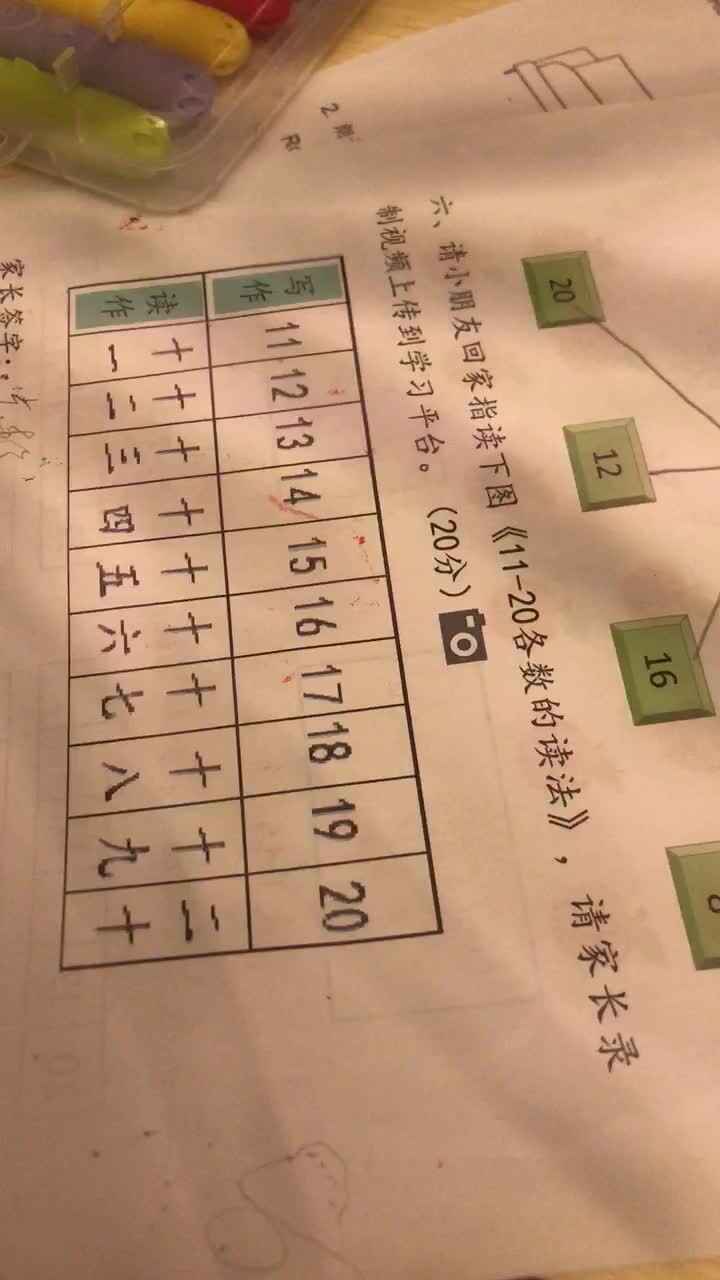 20
12
16
六、请小朋友回家指读下图《11-20各数的读法》，请家长录
制视频上传到学习平台。（20分）
写作 11 12 13 14 15 16 17 18 19 20
读作 十一 十二 十三 十四 十五 十六 十七 十八 十九 二十
家长签字：
2.